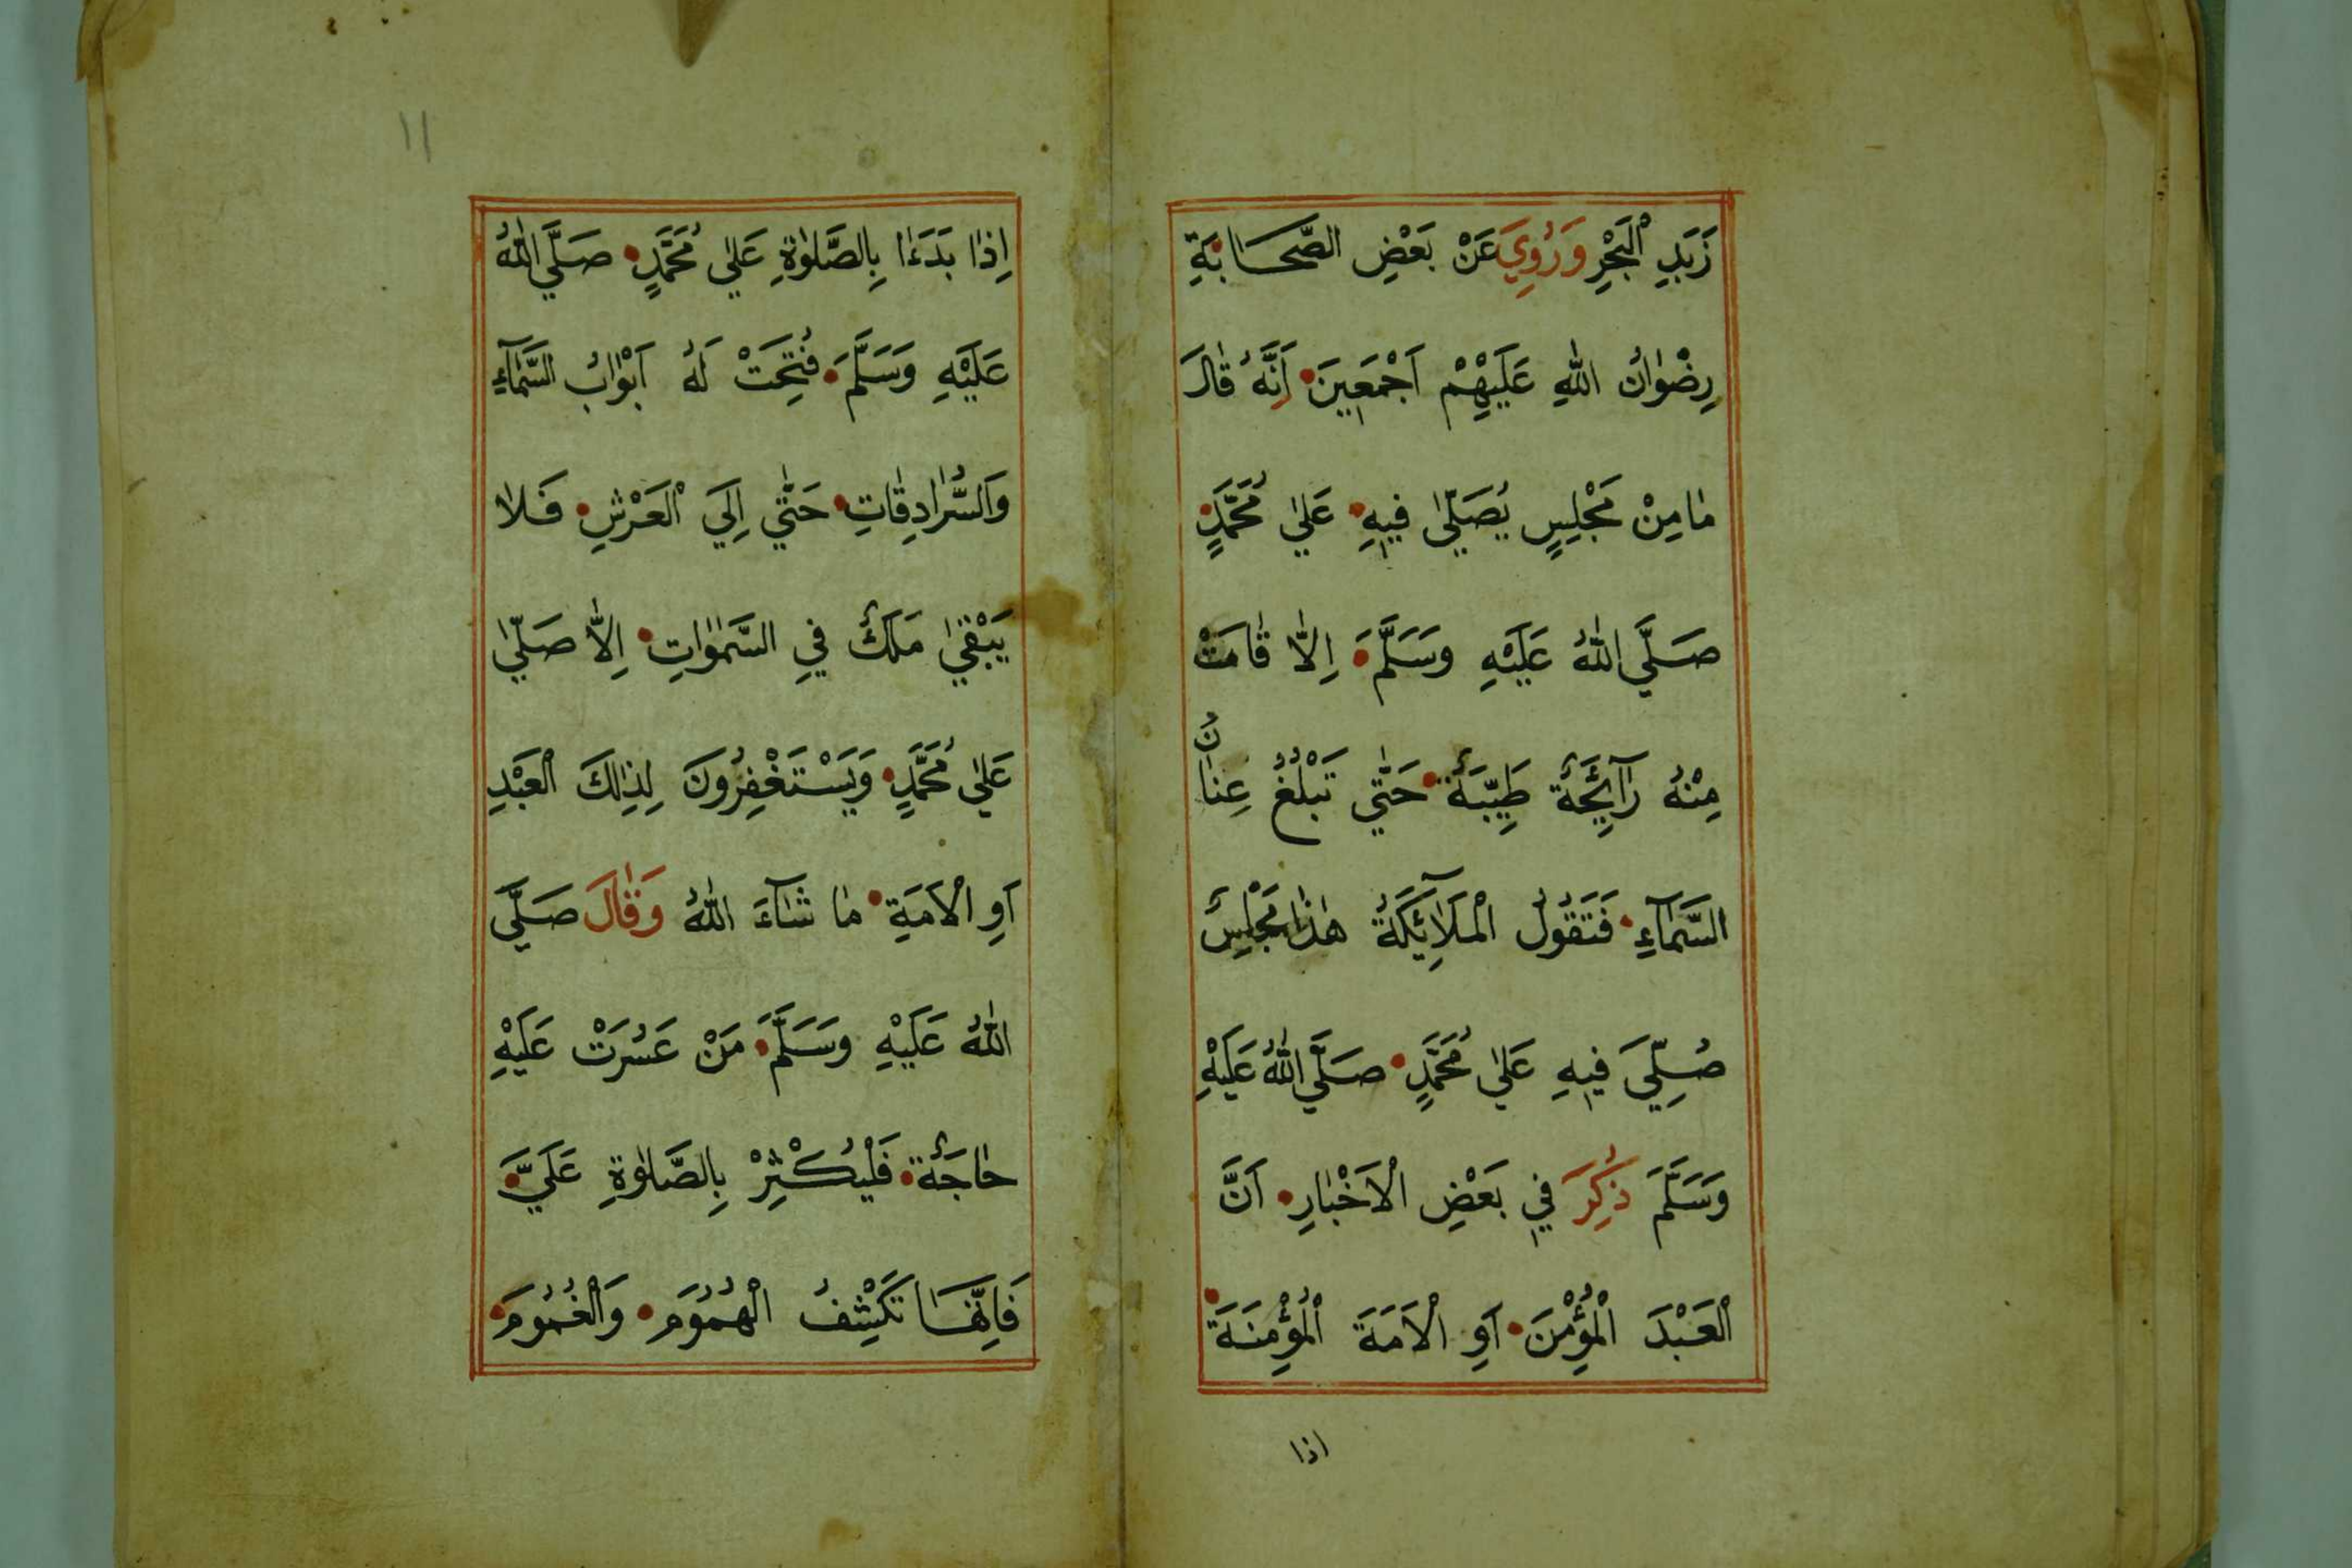 زَبَدِ الْبَحْرِ وَرُوِيَ عَنْ بَعْضِ الصَّحَابَةِ
رِضْوَانُ اللّٰهِ عَلَيْهِمْ اَجْمَعِينَ اَنَّهُ قَالَ
مَا مِنْ مَجْلِسٍ يُصَلّٰى فِيهِ عَلٰي مُحَمَّدٍ
صَلَّي اللّٰهُ عَلَيْهِ وَسَلَّمَ اِلَّا قَامَتْ
مِنْهُ رَآئِحَةٌ طَيِّبَةٌ حَتّٰي تَبْلُغُ عِنَانُ
السَّمَآءِ فَتَقُولُ الْمَلَآئِكَةُ هٰذَا مَجْلِسٌ
صُلِّيَ فِيهِ عَلٰي مُحَمَّدٍ صَلَّي اللّٰهُ عَلَيْهِ
وَسَلَّمَ ذُكِرَ فِي بَعْضِ الْاَخْبَارِ اَنَّ
الْعَبْدَ الْمُؤْمِنَ اَوِ الْاَمَةَ الْمُؤْمِنَةَ
اذا
١١
اِذَا بَدَءَا بِالصَّلٰوةِ عَلٰي مُحَمَّدٍ صَلَّي اللّٰهُ
عَلَيْهِ وَسَلَّمَ فُتِحَتْ لَهُ اَبْوَابُ السَّمَآءِ
وَالسُّرَادِقَاتِ حَتّٰي اِلَي الْعَرْشِ فَلَا
يَبْقٰي مَلَكٌ فِي السَّمٰوَاتِ اِلَّا صَلّٰي
عَلٰي مُحَمَّدٍ وَيَسْتَغْفِرُونَ لِذٰلِكَ الْعَبْدِ
اَوِ الْاَمَةِ مَا شَآءَ اللّٰهُ وَقَالَ صَلَّي
اللّٰهُ عَلَيْهِ وَسَلَّمَ مَنْ عَسُرَتْ عَلَيْهِ
حَاجَةٌ فَلْيُكْثِرْ بِالصَّلٰوةِ عَلَيَّ
فَاِنَّهَا تَكْشِفُ الْهُمُومَ وَالْغُمُومَ